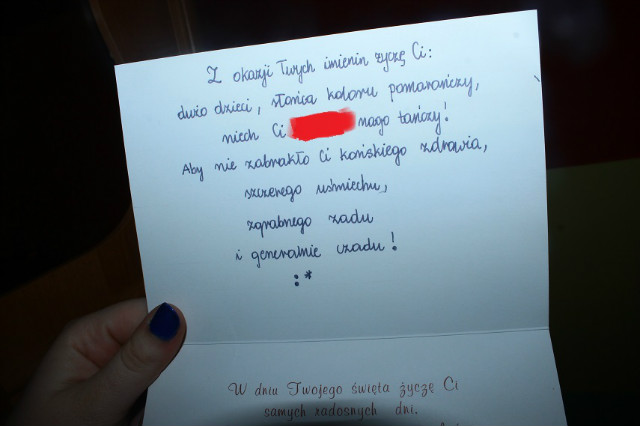 Z okazji Twych imienin życzę Ci:
dużo dzieci, słońca koloru pomarańczy,
niech Ci nago tańczy!
Aby nie zabrakło Ci końskiego zdrowia,
szczerego uśmiechu,
zgrabnego zadu
i generalnie czadu!
:*
W dniu Twojego święta życzę Ci
samych radosnych dni.